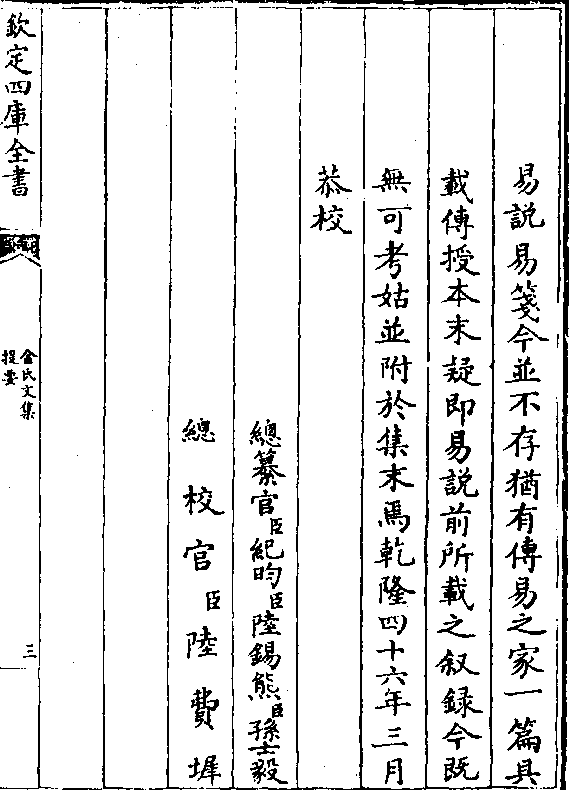 易說易箋今並不存猶有傳易之家一篇具
載傳授本末疑即易說前所載之叙録今既
無可考姑並附於集末焉乾隆四十六年三月
恭校
總纂官臣紀昀臣陸錫熊臣孫士毅
總校官臣陸費墀
欽定四庫全書
金氏文集
提要
三